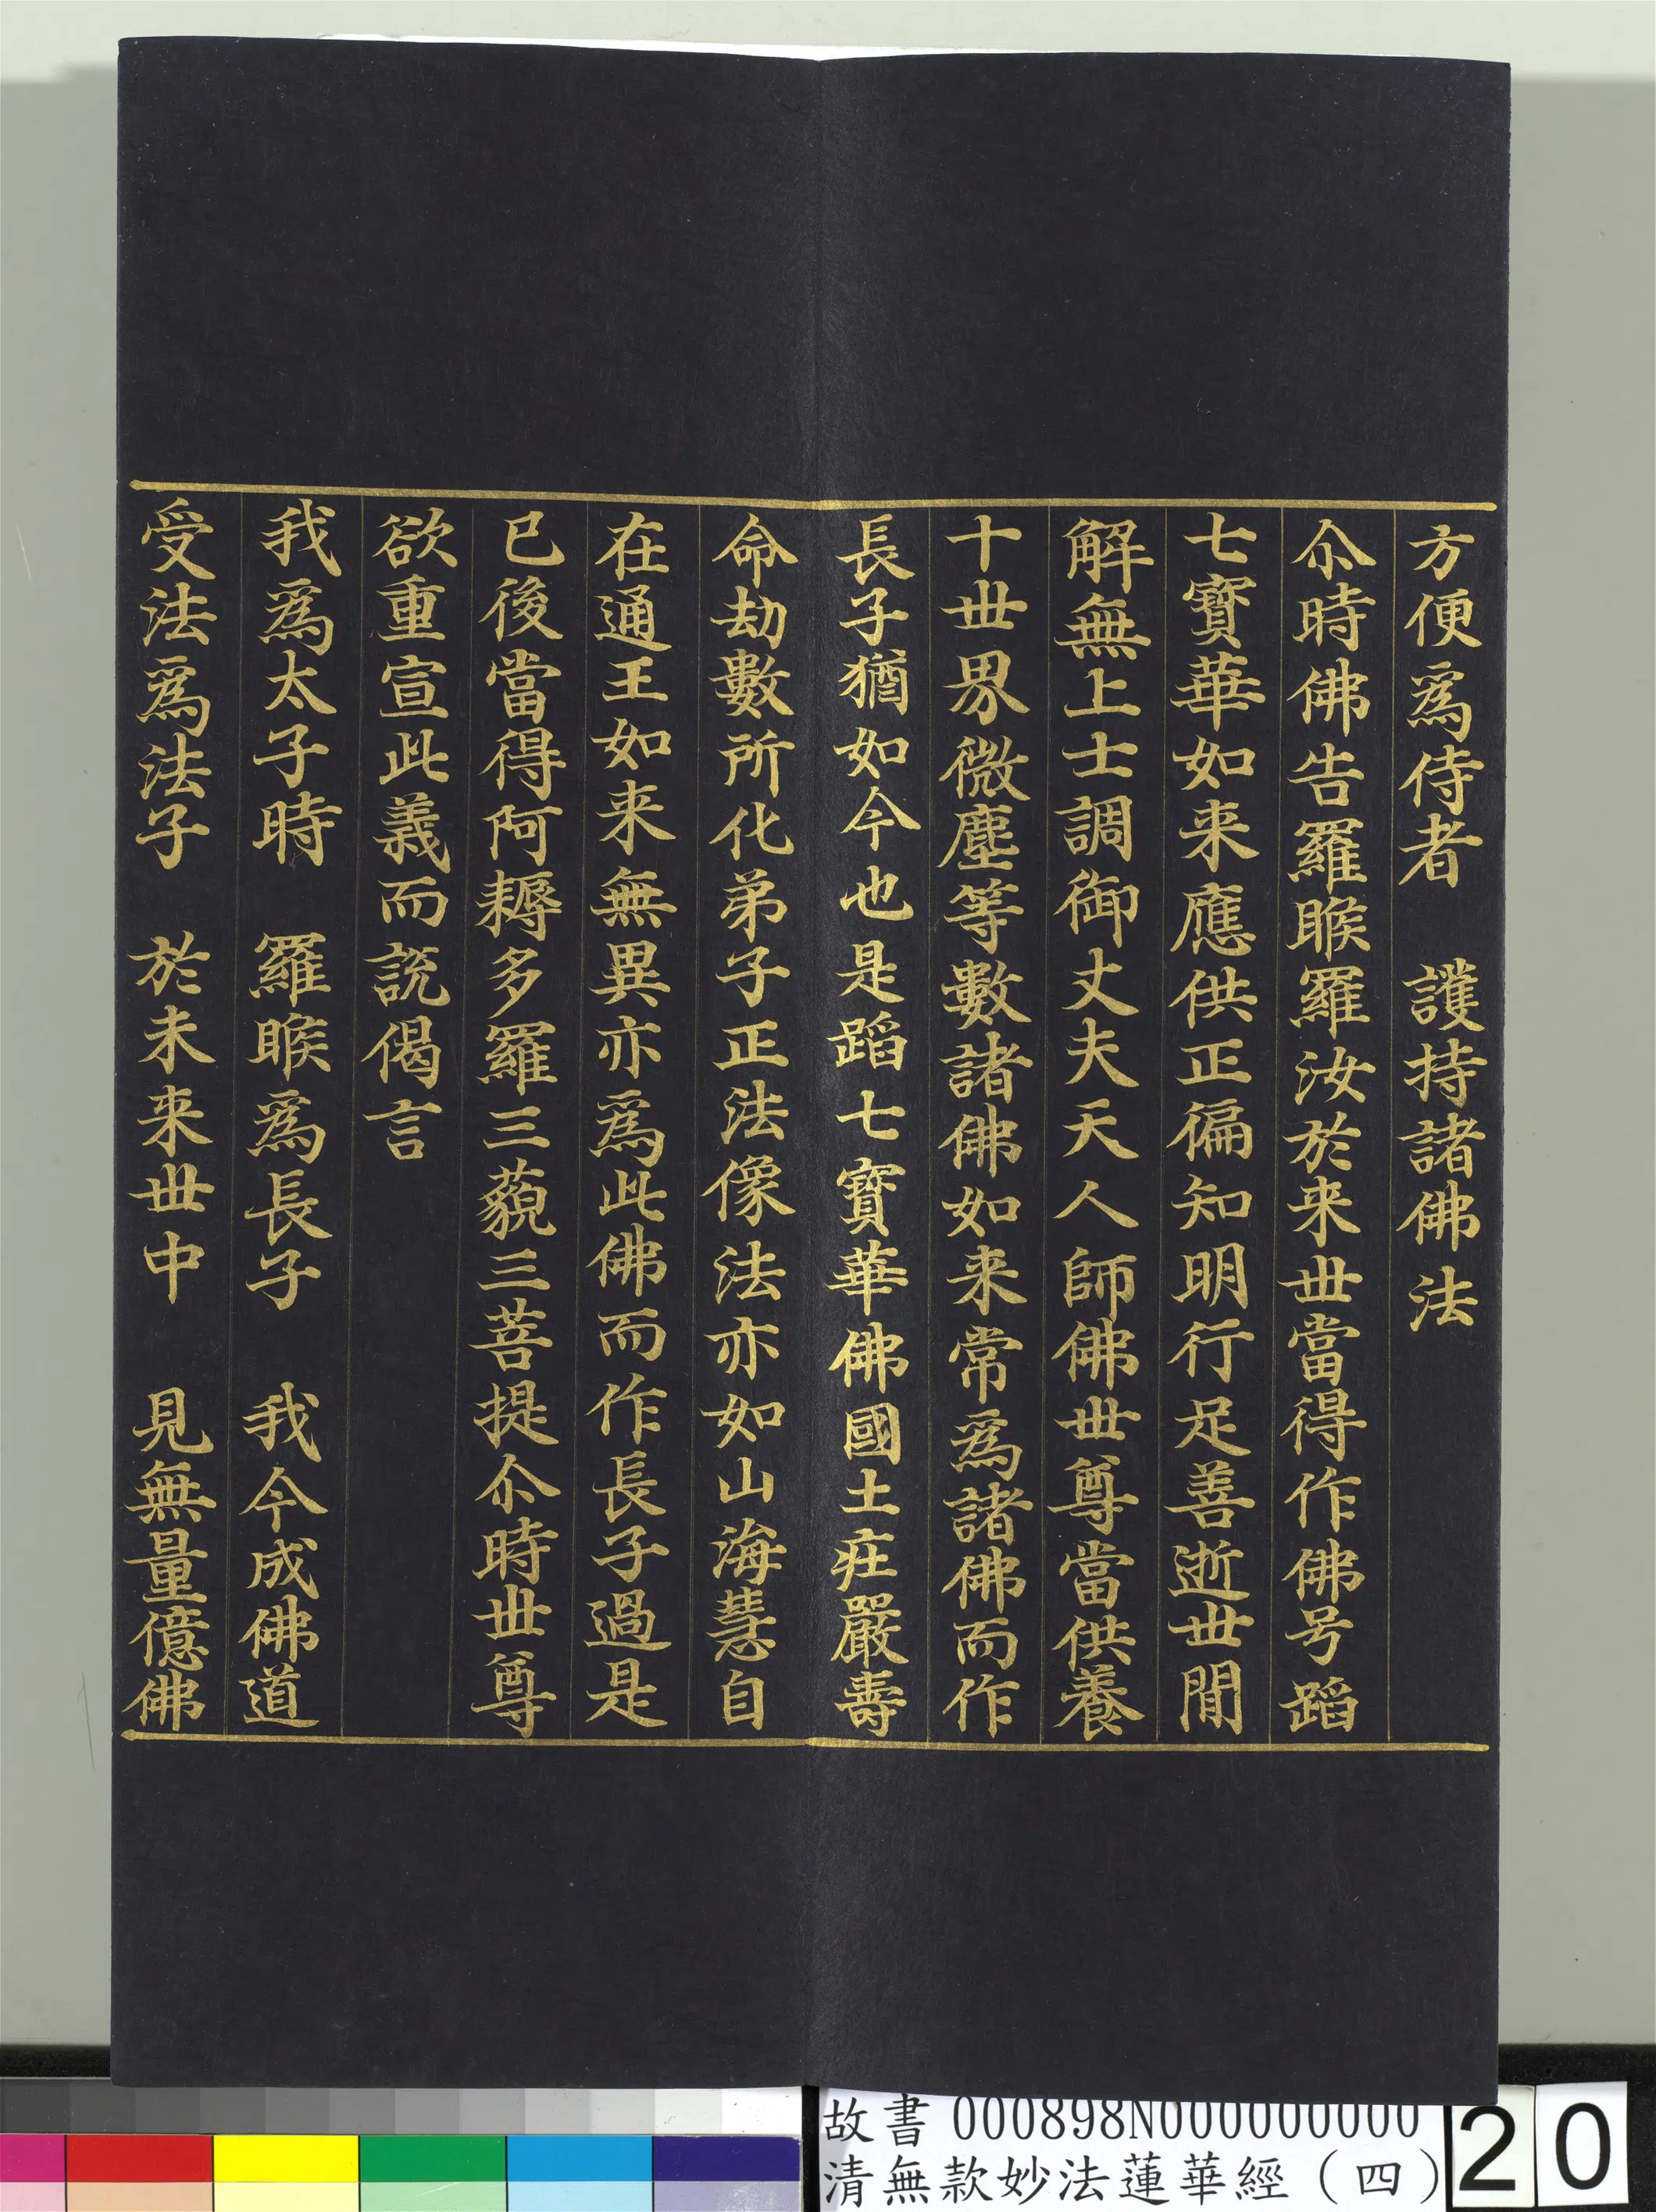 方便爲侍者　護持諸佛法
尒時佛告羅睺羅汝於来丗當得作佛号蹈
七寶華如来應供正徧知明行足善逝丗閒
解無上士調御丈夫天人師佛丗尊當供養
十丗界微塵等數諸佛如来常爲諸佛而作
長子猶如今也是蹈七寶華佛國土莊嚴壽
命劫數所化弟子正法像法亦如山海慧自
在通王如来無異亦爲此佛而作長子過是
已後當得阿耨多羅三藐三菩提尒時丗尊
欲重宣此義而說偈言
我爲太子時　羅睺爲長子　我今成佛道
受法爲法子　於未来丗中　見無量億佛
故書 000898N000000000
清無款妙法蓮華經（四）
20